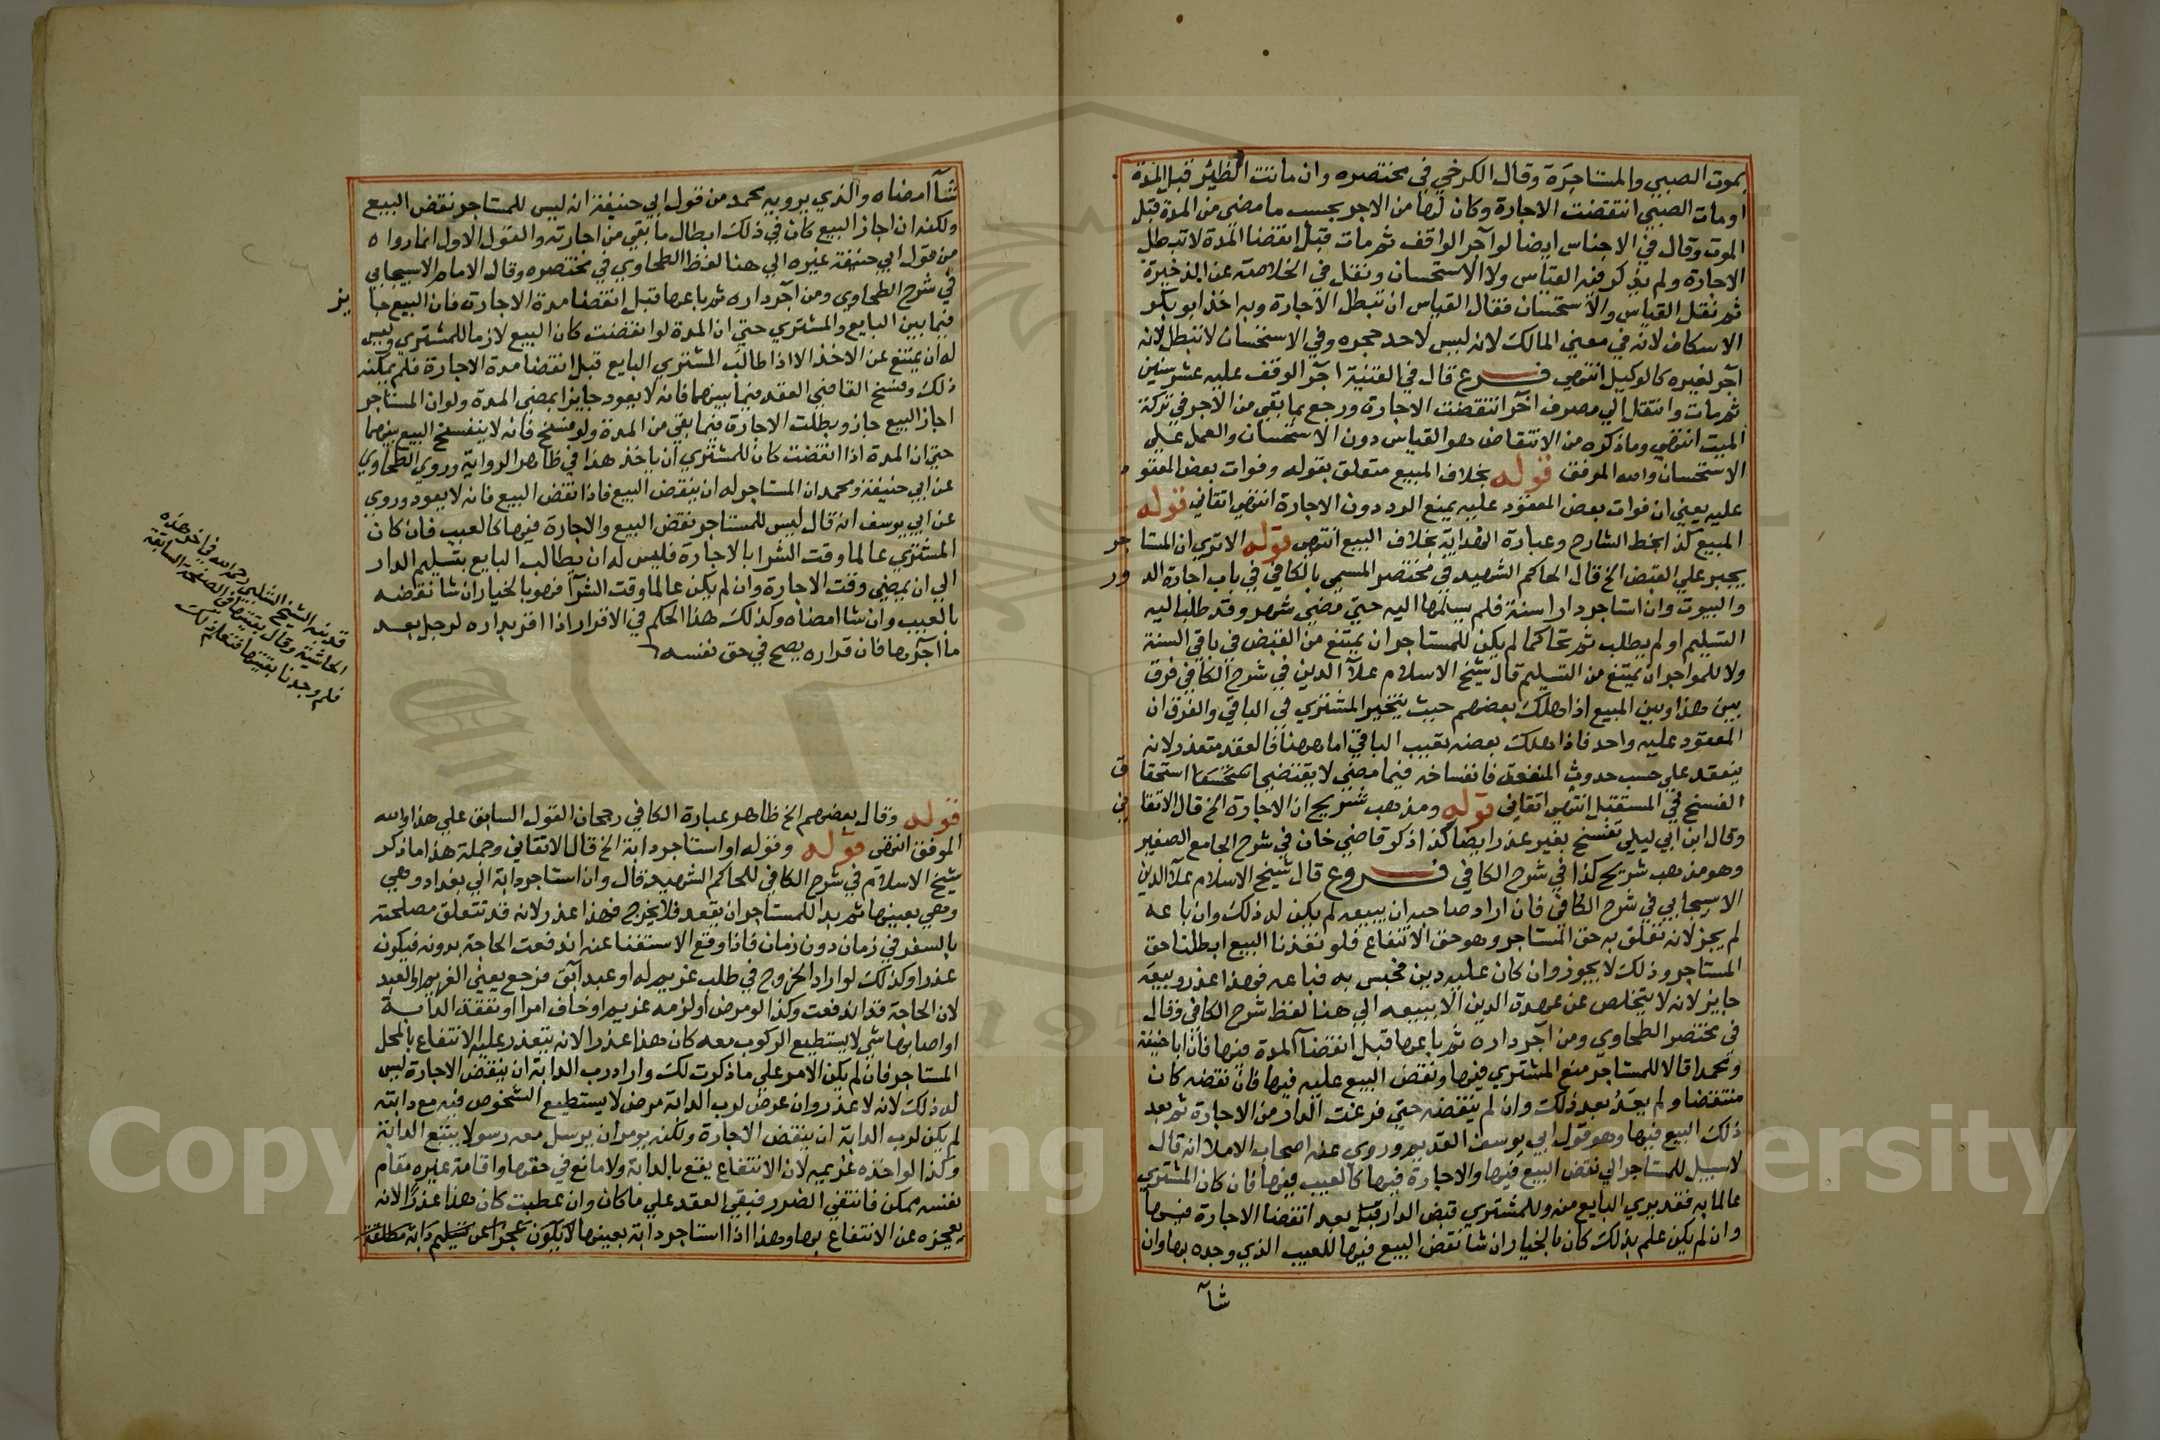 بموت الصبي والمستاجرة وقال الكرخي في مختصره وان ماتت الظئر قبل المدة
او مات الصبي انتقضت الاجارة وكان لها من الاجر بحسب ما مضى من المدة قبل
الموت وقال في الاجناس ايضا لو آجر الواقف ثم مات قبل انقضا المدة لا تبطل
الاجارة ولم يذكر فيه القياس ولا الاستحسان ونقل في الخلاصة عن الذخيرة
ثم نقل القياس والاستحسان فقال القياس ان تبطل الاجارة وبه اخذ ابو بكر
الاسكاف لانه في معني المالك لانه ليس لاحد حجره وفي الاستحسان لا تبطل لانه
آجر لغيره كالوكيل انتهى فرع قال في القنية آجر الوقف عليه عشر سنين
ثم مات وانتقل الي مصرف آخر انتقضت الاجارة ورجع بما بقي من الاجر في تركة
الميت انتهي وما ذكره من الانتقاض هو القياس دون الاستحسان والعمل علي
الاستحسان والله الموفق قوله بخلاف المبيع متعلق بقوله وفوات بعض المعقود
عليه يعني ان فوات بعض المعقود عليه يمنع الرد دون الاجارة انتهي اتقاني قوله
المبيع كذا بخط الشارح وعبارة الهداية بخلاف البيع انتهى قوله الا تري ان المستاجر
يجبر علي القبض الخ قال الحاكم الشهيد في مختصر المسمي بالكافي في باب اجارة الدور
والبيوت وان استاجر دارا سنة فلم يسلمها اليه حتي مضي شهر وقد طلب اليه
التسليم او لم يطلب ثم تحاكما لم يكن للمستاجر ان يمتنع من القبض في باقي السنة
ولا للمواجر ان يمتنع من التسليم قال شيخ الاسلام علآ الدين في شرح الكافي فرق
بين هذا وبين المبيع اذا هلك بعضهم حيث يتخير المشتري في الباقي والفرق ان
المعقود عليه واحد فاذا هلك بعضه بقيب الباقي اما ههنا فالعقد متعدد لانه
ينعقد علي حسب حدوث المنفعة فانفساخه فيما مضي لا يقتضي استحقاق
الفسخ في المستقبل انتهى اتقاني قوله ومذهب شريح ان الاجارة الخ قال الاتقاني
وقال ابن ابي ليلي تفسخ بغير عذر ايضا كذا ذكر قاضي خان في شرح الجامع الصغير
وهو مذهب شريح كذا في شرح الكافي فروع قال شيخ الاسلام علآ الدين
الاسبيجابي في شرح الكافي فان اراد صاحبه ان يبيعه لم يكن له ذلك وان باعه
لم يجز لانه تعلق به حق المستاجر وهو حق الانتفاع فلو نفذنا البيع ابطلنا حق
المستاجر وذلك لا يجوز وان كان عليه دين فحبس به فباعه فهذا عذر وبيعه
جايز لانه لا يتخلص عن عهدة الدين الا ببيعه الي هنا لفظ شرح الكافي وقال
في مختصر الطحاوي ومن آجر داره ثم باعها قبل انقضآ المدة فيها فان ابا حنيفة
ومحمدا قالا للمستاجر منع المشتري فيها ونقض البيع عليه فيها فان نقضه كان
منتقضا ولم يعد بعد ذلك وان لم ينقضه حتي فرغت الدار من الاجارة ثم بعد
ذلك البيع فيها وهو قول ابي يوسف القديم وروي عنه اصحاب الاملا انه قال
لا سبيل للمستاجر الي نقض البيع فيها والاجارة فيها كالعيب فيها فان كان المشتري
عالما به فقد بري البايع منه وللمشتري قبض الدار بعد انقضا الاجارة فيها
وان لم يكن علم بذلك كان بالخيار ان شا نقض البيع فيها للعيب الذي وجده بها وان
شآ
شآ امضاه والذي يرويه محمد من قول ابي حنيفة انه ليس للمستاجر نقض البيع
ولكنه ان اجاز البيع كان في ذلك ابطال ما بقي من اجارته والقول الاول انما رواه
من قول ابي حنيفة غيره الي هنا لفظ الطحاوي في مختصره وقال الامام الاسبيجابي
في شرح الطحاوي ومن آجر داره ثم باعها قبل انقضا مدة الاجارة فان البيع جايز
فيما بين البايع والمشتري حتي ان المدة لو انقضت كان البيع لازما للمشتري وليس
له ان يمتنع عن الاخذ الا اذا طالب المشتري البايع قبل انقضا مدة الاجارة فلم يمكنه
ذلك وفسخ القاضي العقد فيما بينهما فانه لا يعود جايزا بمضي المدة ولو ان المستاجر
اجاز البيع جاز وبطلت الاجارة فيما بقي من المدة ولو فسخ فانه لا ينفسخ البيع بينهما
حتي ان المدة اذا انقضت كان للمشتري ان ياخذ هذا في ظاهر الرواية وروي الطحاوي
عن ابي حنيفة ومحمد ان المستاجر له ان ينقض البيع فاذا نقض البيع فانه لا يعود وروي
عن ابي يوسف انه قال ليس للمستاجر نقض البيع والاجارة فيها كالعيب فان كان
المشتري عالما وقت الشرا بالاجارة فليس له ان يطالب البايع بتسليم الدار
الي ان يمضي وقت الاجارة وان لم يكن عالما وقت الشرآ فهو بالخيار ان شا نقضه
بالعيب وان شا امضاه وكذلك هذا الحكم في الاقرار اذا اقر بداره لرجل بعد
ما آجرها فان قراره يصح في حق نفسه
قد نبه الشيخ الشلبي رحمه الله في اخر هذه
الحاشية وقال بقيتها في الصفحة السابقة
فلم وجدنا بقيتها فتعلم لك
قوله وقال بعضهم الخ ظاهر عبارة الكافي رجحان القول السابق علي هذا والله
الموفق انتهى قوله وقوله او استاجر دابة الخ قال الاتقاني وجملة هذا ما ذكر
شيخ الاسلام في شرح الكافي للحاكم الشهيد قال وان استاجر دابة الي بغداد وهي
وهي بعينها ثم بدا للمستاجر ان يقعد فلا يخرج فهذا عذر لانه قد تتعلق مصلحته
بالسفر في زمان دون زمان فاذا وقع الاستغنا عنه اندفعت الحاجة بدونه فيكون
عذرا وكذلك لو اراد الخروج في طلب غريم له او عبد آبق فرجع يعني الغريم او العبد
لان الحاجة قد اندفعت وكذا لو مرض او لزمه غريم او خاف امرا او نفقت الدابة
او اصابها شي لا يستطيع الركوب معه كان هذا عذرا لانه يتعذر عليه الانتفاع بالمحل
المستاجر فان لم يكن الامر علي ما ذكرت لك واراد رب الدابة ان ينقض الاجارة ليس
له ذلك لانه لا عذر وان عرض لرب الدابة مرض لا يستطيع الشخوص فيه مع دابته
لم يكن لرب الدابة ان ينقض الاجارة ولكنه يومر ان يرسل معه رسولا يتبع الدابة
وكذا لو اخذه غريمه لان الانتفاع يقع بالدابة ولا مانع في حقها واقامة غيره مقام
نفسه ممكن فانتفي الضرر فبقي العقد علي ما كان وان عطبت كان هذا عذرا لانه
يعجزه عن الانتفاع بها وهذا اذا استاجر دابة بعينها لا يكون عجزا عن تسليم دابة مطلقة
Copyright © King Saud University
195